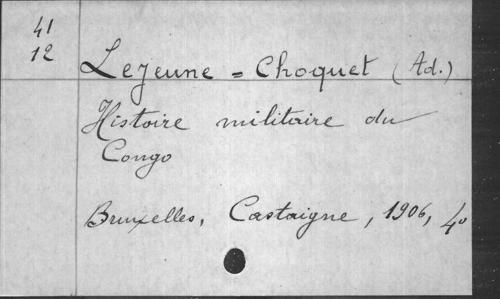 41
12
Lejeune = Choquet (Ad.)
Histoire militaire du
Congo
Bruxelles, Castaigne, 1906, 4o